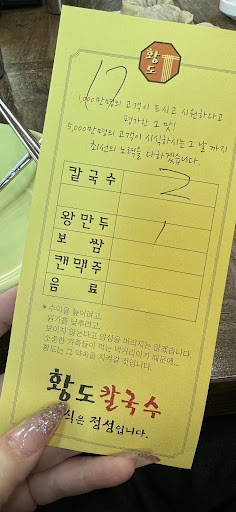 황도
17
1,000만명의 고객이 드시고 시원하다고
평가한 그 맛!
5,000만명의 고객이 시식하시는 그 날 까지
최선의 노력을 다하겠습니다.
칼국수 2
왕만두 1
보쌈
캔맥주
음료
* 수익을 높이려고,
원가를 낮추려고,
보이지 않는다고 양심을 버리지는 않겠습니다.
소중한 가족들이 먹는 먹거리이기 때문에...
황도는 그 약속을 지켜갈 것입니다.
황도칼국수
식은 정성입니다.